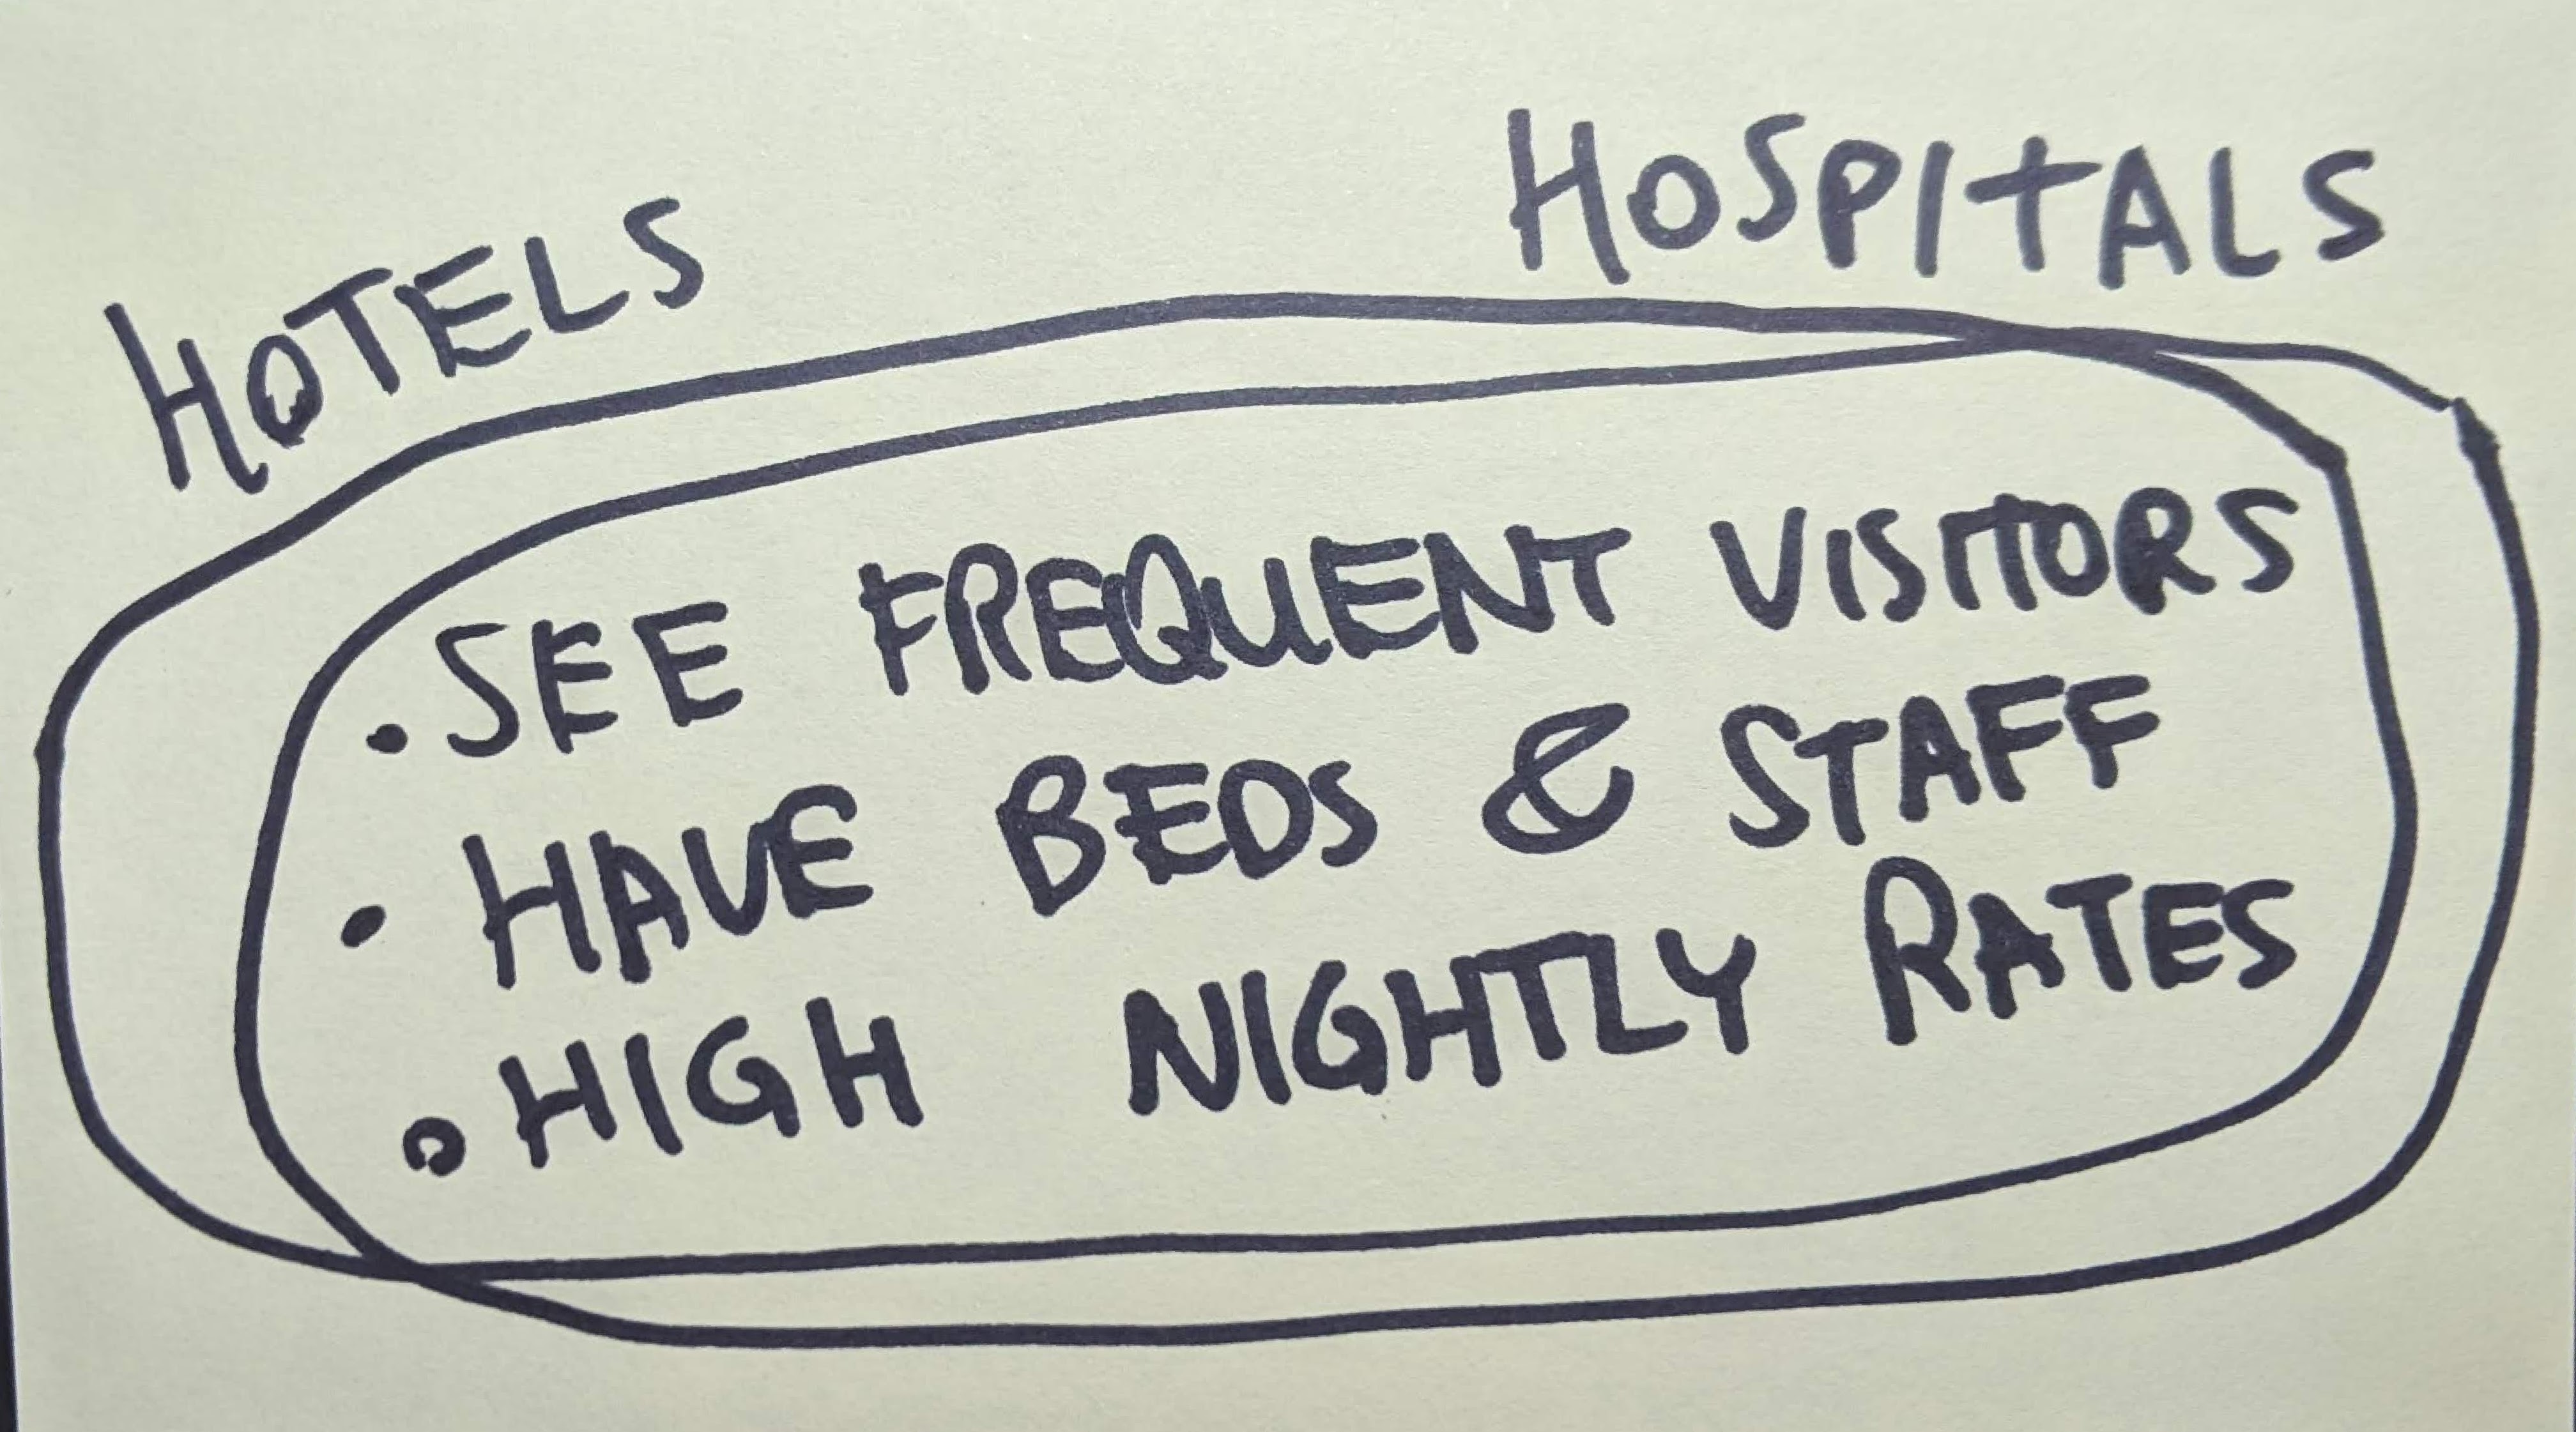 HOTELS
HOSPITALS
• SEE FREQUENT VISITORS
• HAVE BEDS & STAFF
• HIGH NIGHTLY RATES